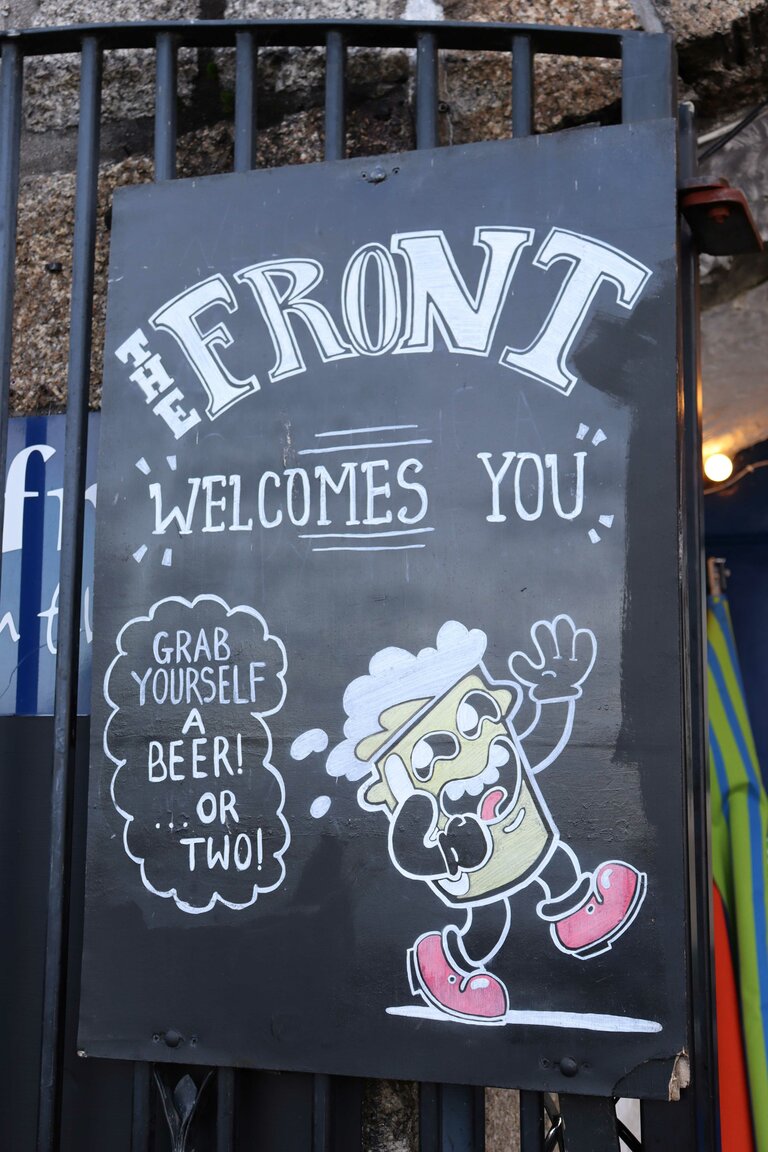 THE FRONT
WELCOMES YOU
GRAB
YOURSELF
A
BEER!
...OR
TWO!